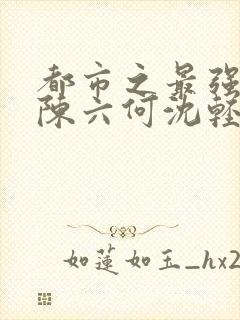 都市之最强
陈六何沈轻
如莲如玉_hx2